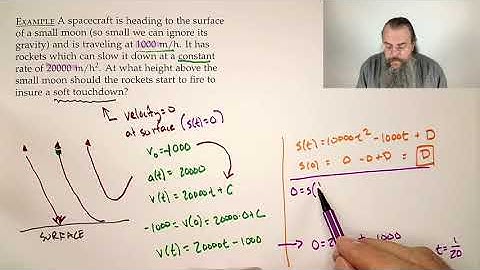 EXAMPLE A spacecraft is heading to the surface
of a small moon (so small we can ignore its
gravity) and is traveling at 1000 m/h. It has
rockets which can slow it down at a constant
rate of 20000 m/h². At what height above the
small moon should the rockets start to fire to
insure a soft touchdown?
velocity=0
at surface (s(t)=0)
SURFACE
v₀=-1000
a(t)=20000
v(t)=20000t+C
-1000=v(0)=20000·0+C
v(t)=20000t-1000
s(t)=10000t²-1000t+D
s(0)= 0 -0+D = D
0=s(
0=2 t-1000
t=1/20